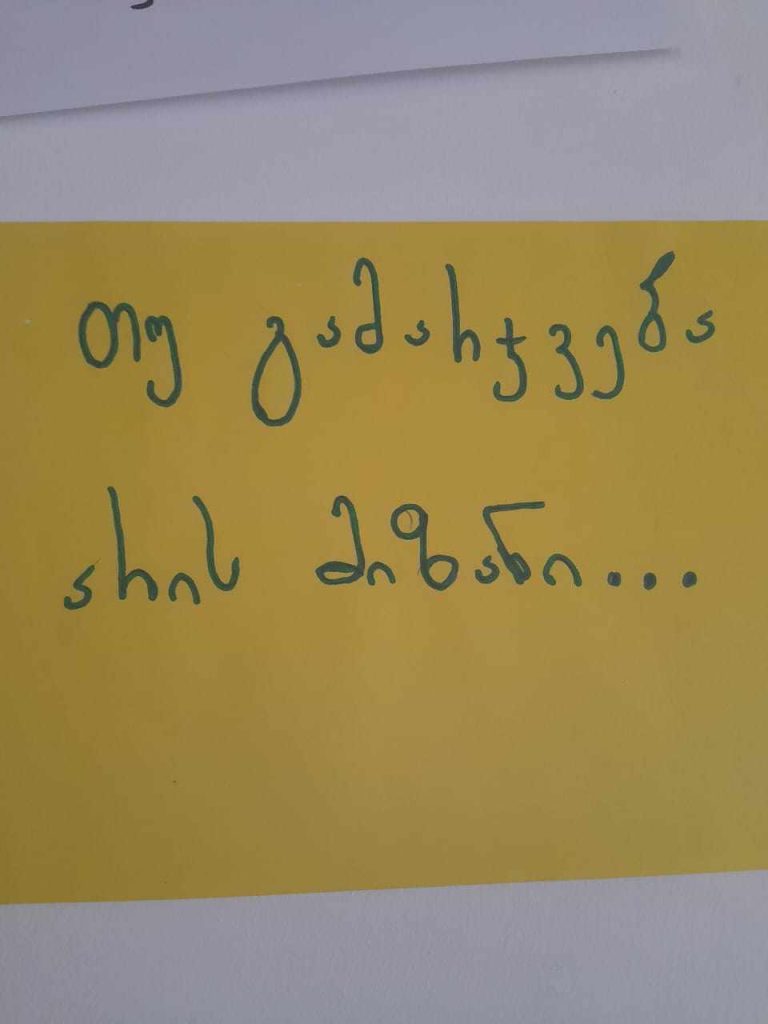 თუ გამარჯვება
არის მიზანი...